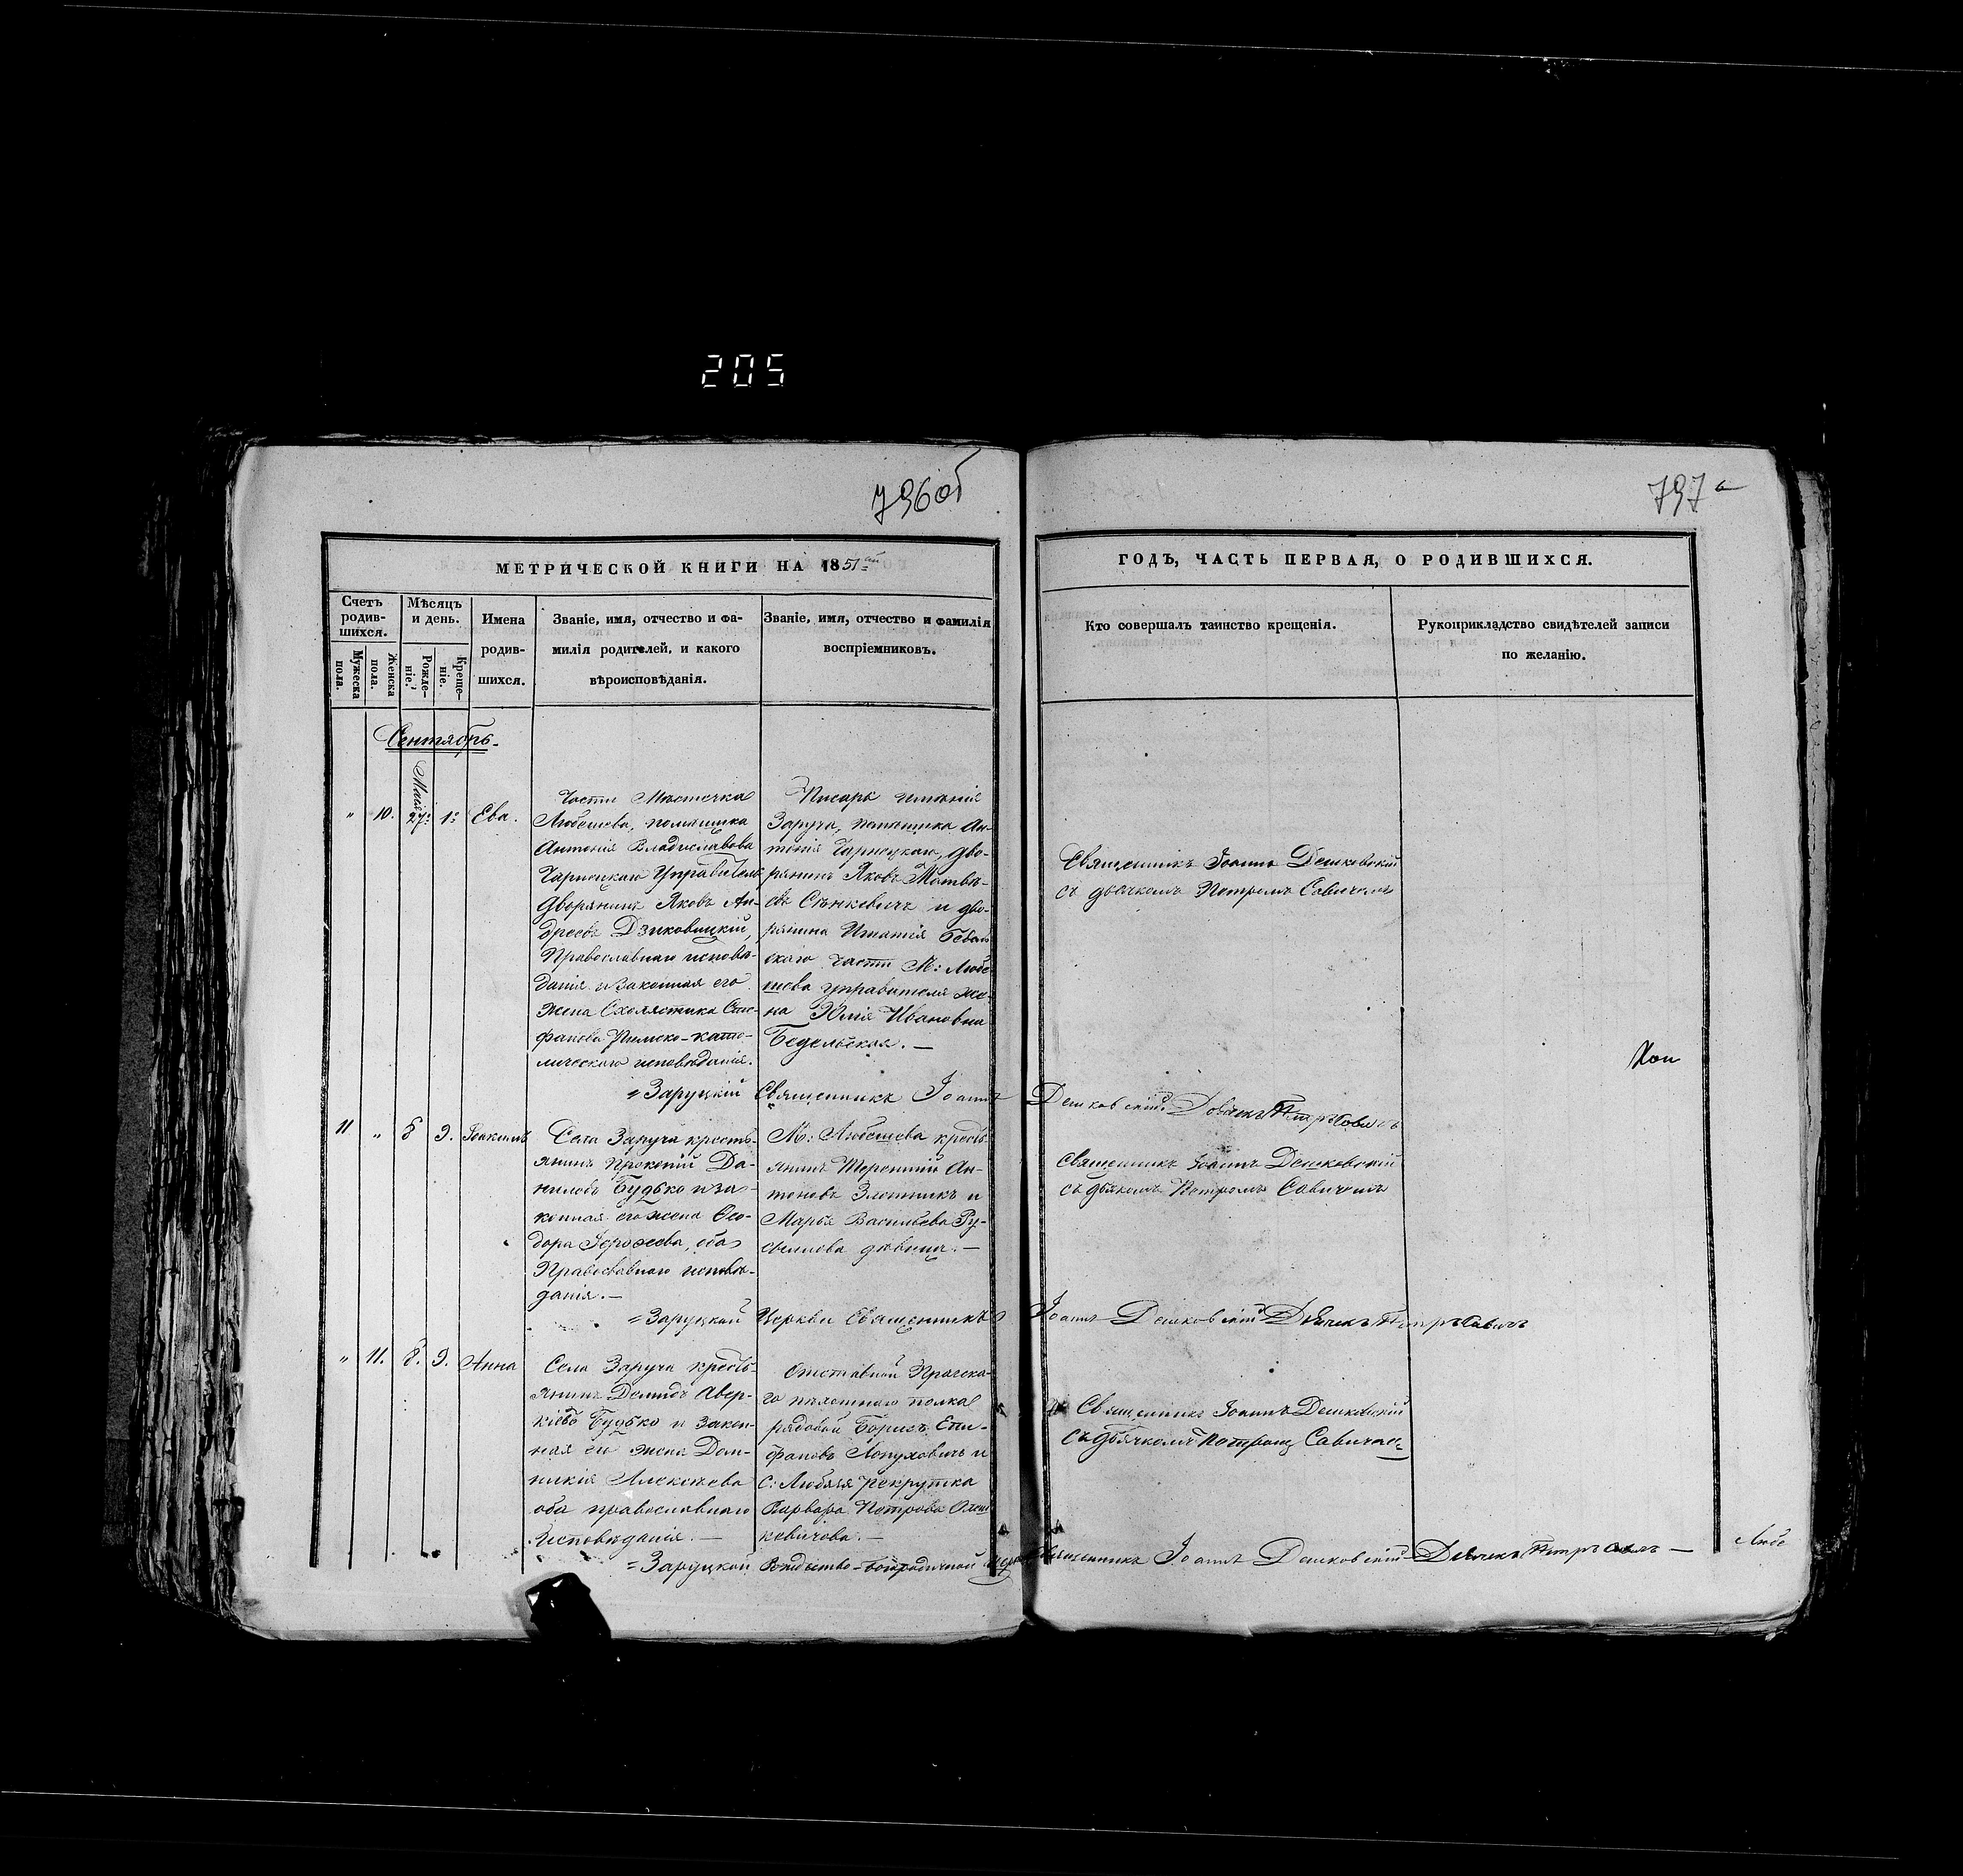 205
796об
797а
МЕТРИЧЕСКОЙ КНИГИ НА 1851ый
ГОДЪ, ЧАСТЬ ПЕРВАЯ, О РОДИВШИХСЯ.
Счетъ родив-шихся.
Мужеска пола.
Женска пола.
Мѣсяцъ и день.
Рожде-ніе.
Креще-ніе.
Имена родив-шихся.
Званіе, имя, отчество и фа-
милія родителей, и какого
вѣроисповѣданія.
Званіе, имя, отчество и фамилія
воспріемниковъ.
Кто совершалъ таинство крещенія.
Рукоприкладство свидѣтелей записи
по желанію.
Сентябрь.
" 10. Маія 27. 1. Ева.
Части Мѣстечка
Любешева, помѣщика
Антонія Владиславова
Чарнецкаго Управитель
Дворянинъ Яковъ Ан-
дреевъ Дзиковицкій,
Православнаго исповѣ-
данія и законная его
жена Схолястика Сте-
фанова Римско-като-
лическаго исповѣданія.
Писарь имѣнія
Заруча, помѣщика Ан-
тонія Чарнецкаго, дво-
рянинъ Яковъ Матвѣ-
евъ Сѣнкевичъ и дво-
рянина Игнатія
скаго части М: Любе-
шева управителя же-
на Юлія Ивановна
Священникъ Іоаннъ Дешковскій
съ дьячкомъ Петромъ Савичемъ
Заруцкій Священникъ Іоаннъ Дешковскій Дьячекъ Петръ Савичъ
11 " 8 9. Іоакимъ
Села Заруча кресть-
янинъ Прокопій Да-
ниловъ Будько и за-
конная его жена Ѳео-
дора Іерофеева, оба
Православнаго исповѣ-
данія.—
М: Любешева кресть-
янинъ Терентій Ан-
тоновъ Злотникъ и
Марья Васильева
дѣвица.—
Священникъ Іоаннъ Дешковскій
съ дьячкомъ Петромъ Савичемъ
Заруцкой Церкви Священникъ Іоаннъ Дешковскій Дьячекъ Петръ Савичъ
" 11. 8. 9. Анна
Села Заруча кресть-
янинъ Демидъ Авер-
кіевъ Будько и закон-
ная его жена Дом-
никія Алексѣева
оба православнаго
Исповѣданія.—
Отставной Пражска-
го пѣхотнаго полка
рядовой Борисъ Епи-
фановъ Лопуховичъ и
С: Любязя рекрутка
Варвара Петрова
Священникъ Іоаннъ Дешковскій
съ дьячкомъ Петромъ Савичемъ
Заруцкой Рождество-Богородичной Священникъ Іоаннъ Дешковскій Дьячекъ Петръ Савичъ —
Кон
Любе